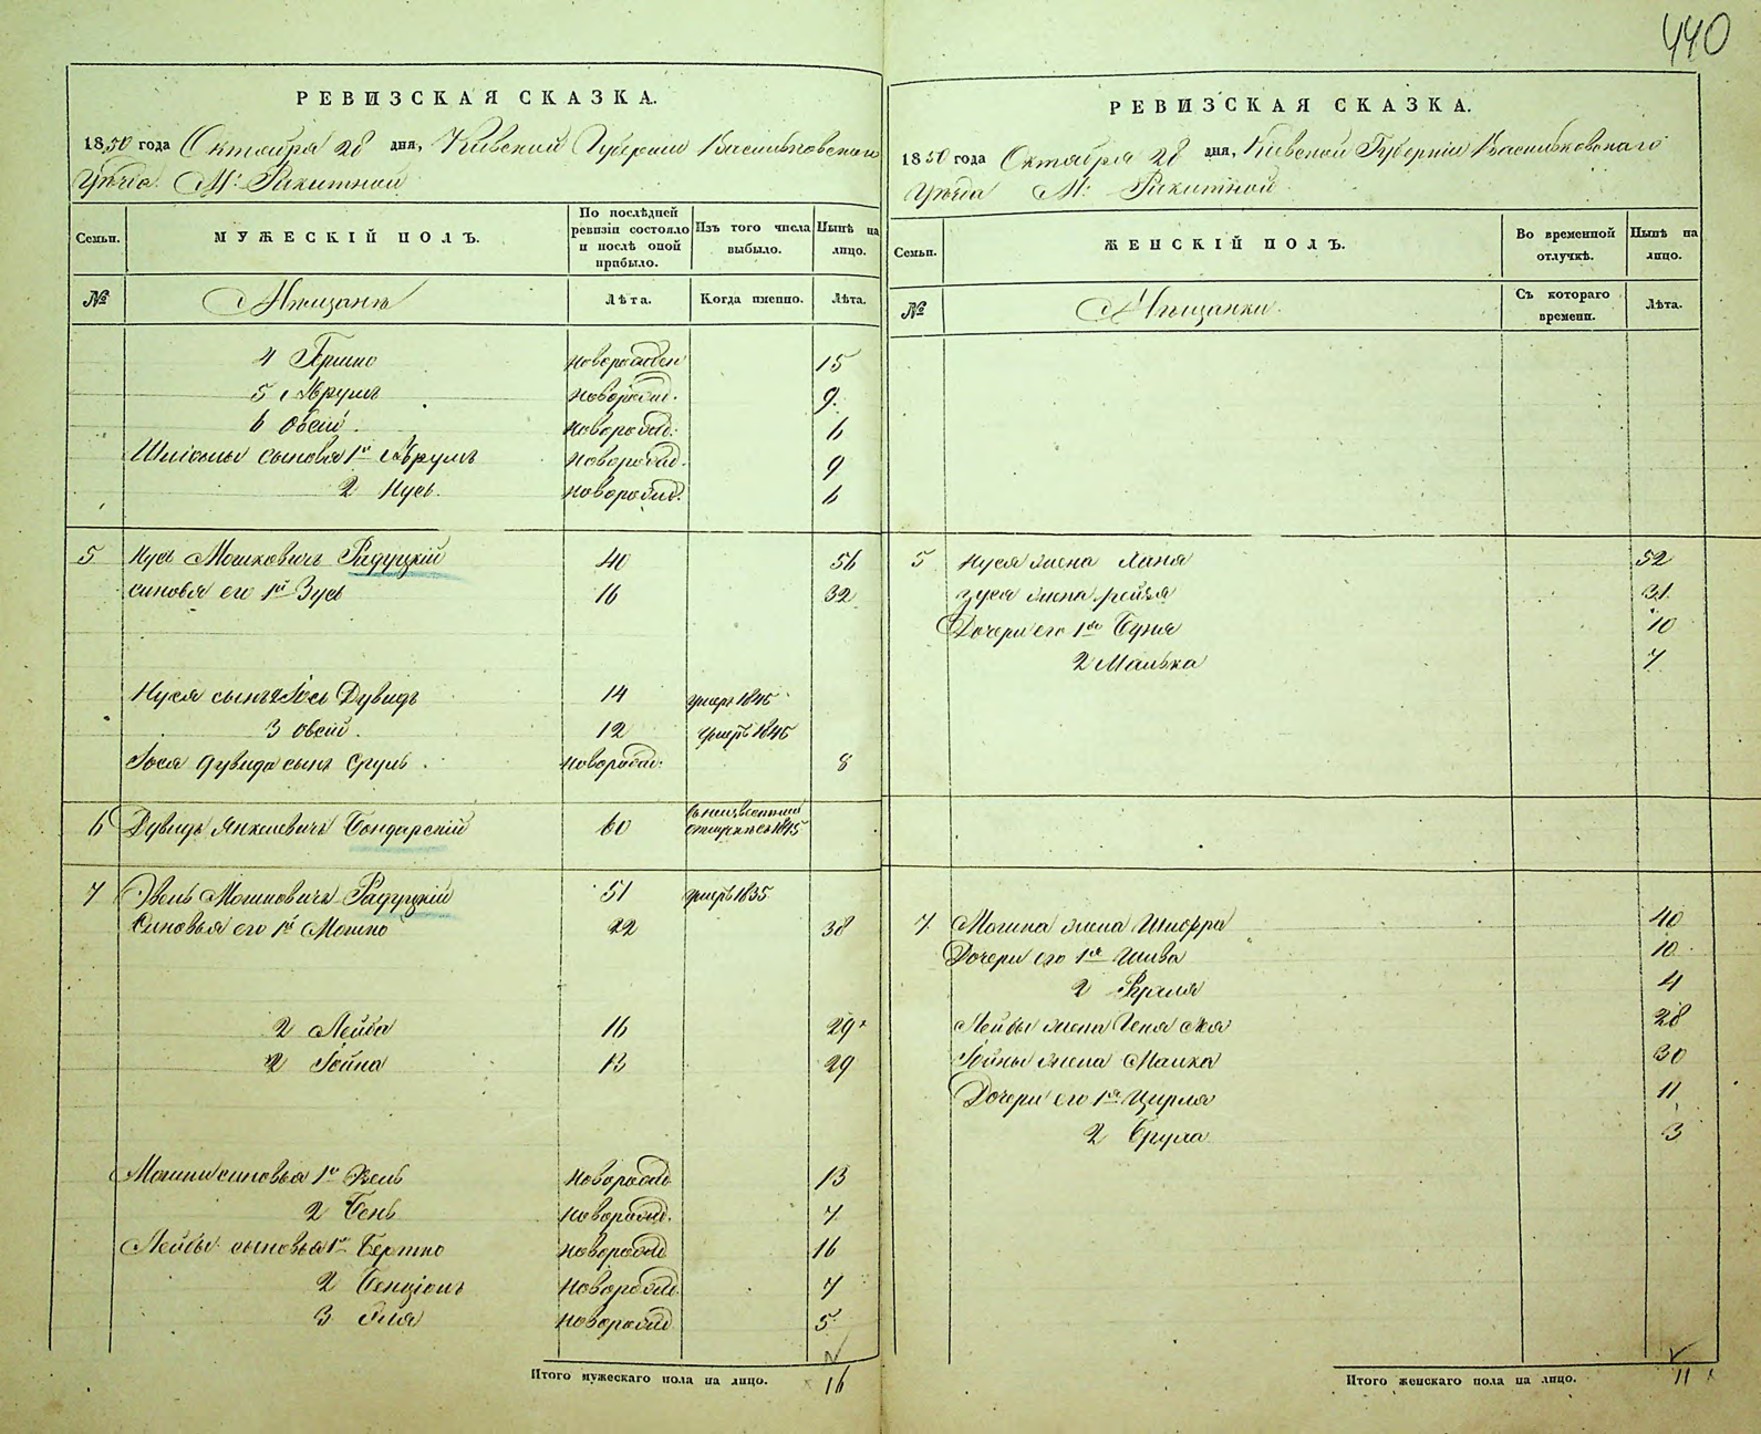 440
РЕВИЗСКАЯ СКАЗКА.
1850 года Октября 28 дня, Кіевской Губерніи Васильковскаго
Уѣзда М: Рикитной
Семьи.
МУЖЕСКІЙ ПОЛЪ.
По послѣдней ревизіи состояло и послѣ оной прибыло.
Изъ того числа выбыло.
Нынѣ на лицо.
№
Мѣщанѣ
Лѣта.
Когда именно.
Лѣта.
4 Гершко новорожден 15
5 Аврумъ новорожд. 9.
6 Овсій новорожд. 6
Шліомы сыновя 1й Аврумъ новорожд. 9
2 Нусь новорожд. 6
5 Нусь Мошковичъ Радуцкій 40 56
синовя его 1й Зусь 16 32
Нуся сынъ 2 Іось Дувидъ 14 умеръ 1846
3 Овсій 12 умеръ 1846
Іося Дувида сынъ Сруль новорожд. 8
6 Дувидъ Янкелевичъ Бондарскій 60 въ неизвестной отлучкѣ съ 1845
7 Мошковичъ Радуцкій 51 умеръ 1835
Синовья его 1й Мошко 22 38
2 Лейба 16 29
2 Іойна 13 29
Мошки синовья 1й новорожд 13
2 Бень новорожд. 7
Лейбы сыновья 1й Бершко новорожд 16
2 Бенціонъ новорожд 7
3 Эля новорожд 5
Итого мужескаго пола на лицо. 16
РЕВИЗСКАЯ СКАЗКА.
1850 года Октября 28 дня, Кіевской Губерніи Васильковскаго
Уѣзда М: Рикитной
Семьи.
ЖЕНСКІЙ ПОЛЪ.
Во временной отлучкѣ.
Нынѣ на лицо.
№
Мѣщанки
Съ котораго времени.
Лѣта.
5 Нуся жена Хана 52
Зуся жена Рейзя 31
Дочери его 1я Буня 10
2 Малька 7
7 Мошка жена Шифра 40
Дочери его 1я Шива 10
2 4
Лейбы жена Геня 28
Іойны жена Малка 30
Дочери его 1я Цирля 11
2 Бруха 3
Итого женскаго пола на лицо. 11